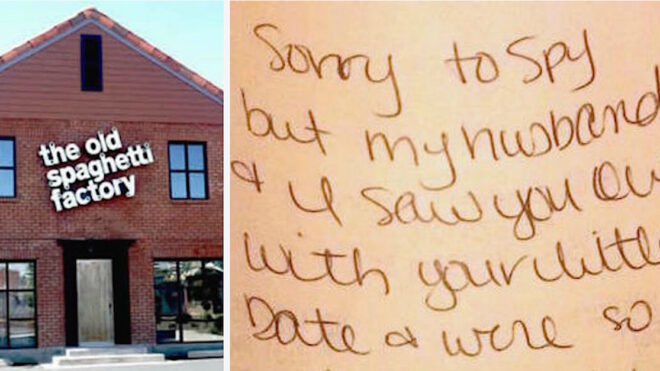 the old
spaghetti
factory
Sorry to Spy
but my husband
& I saw you ou
with your little
Date & were so